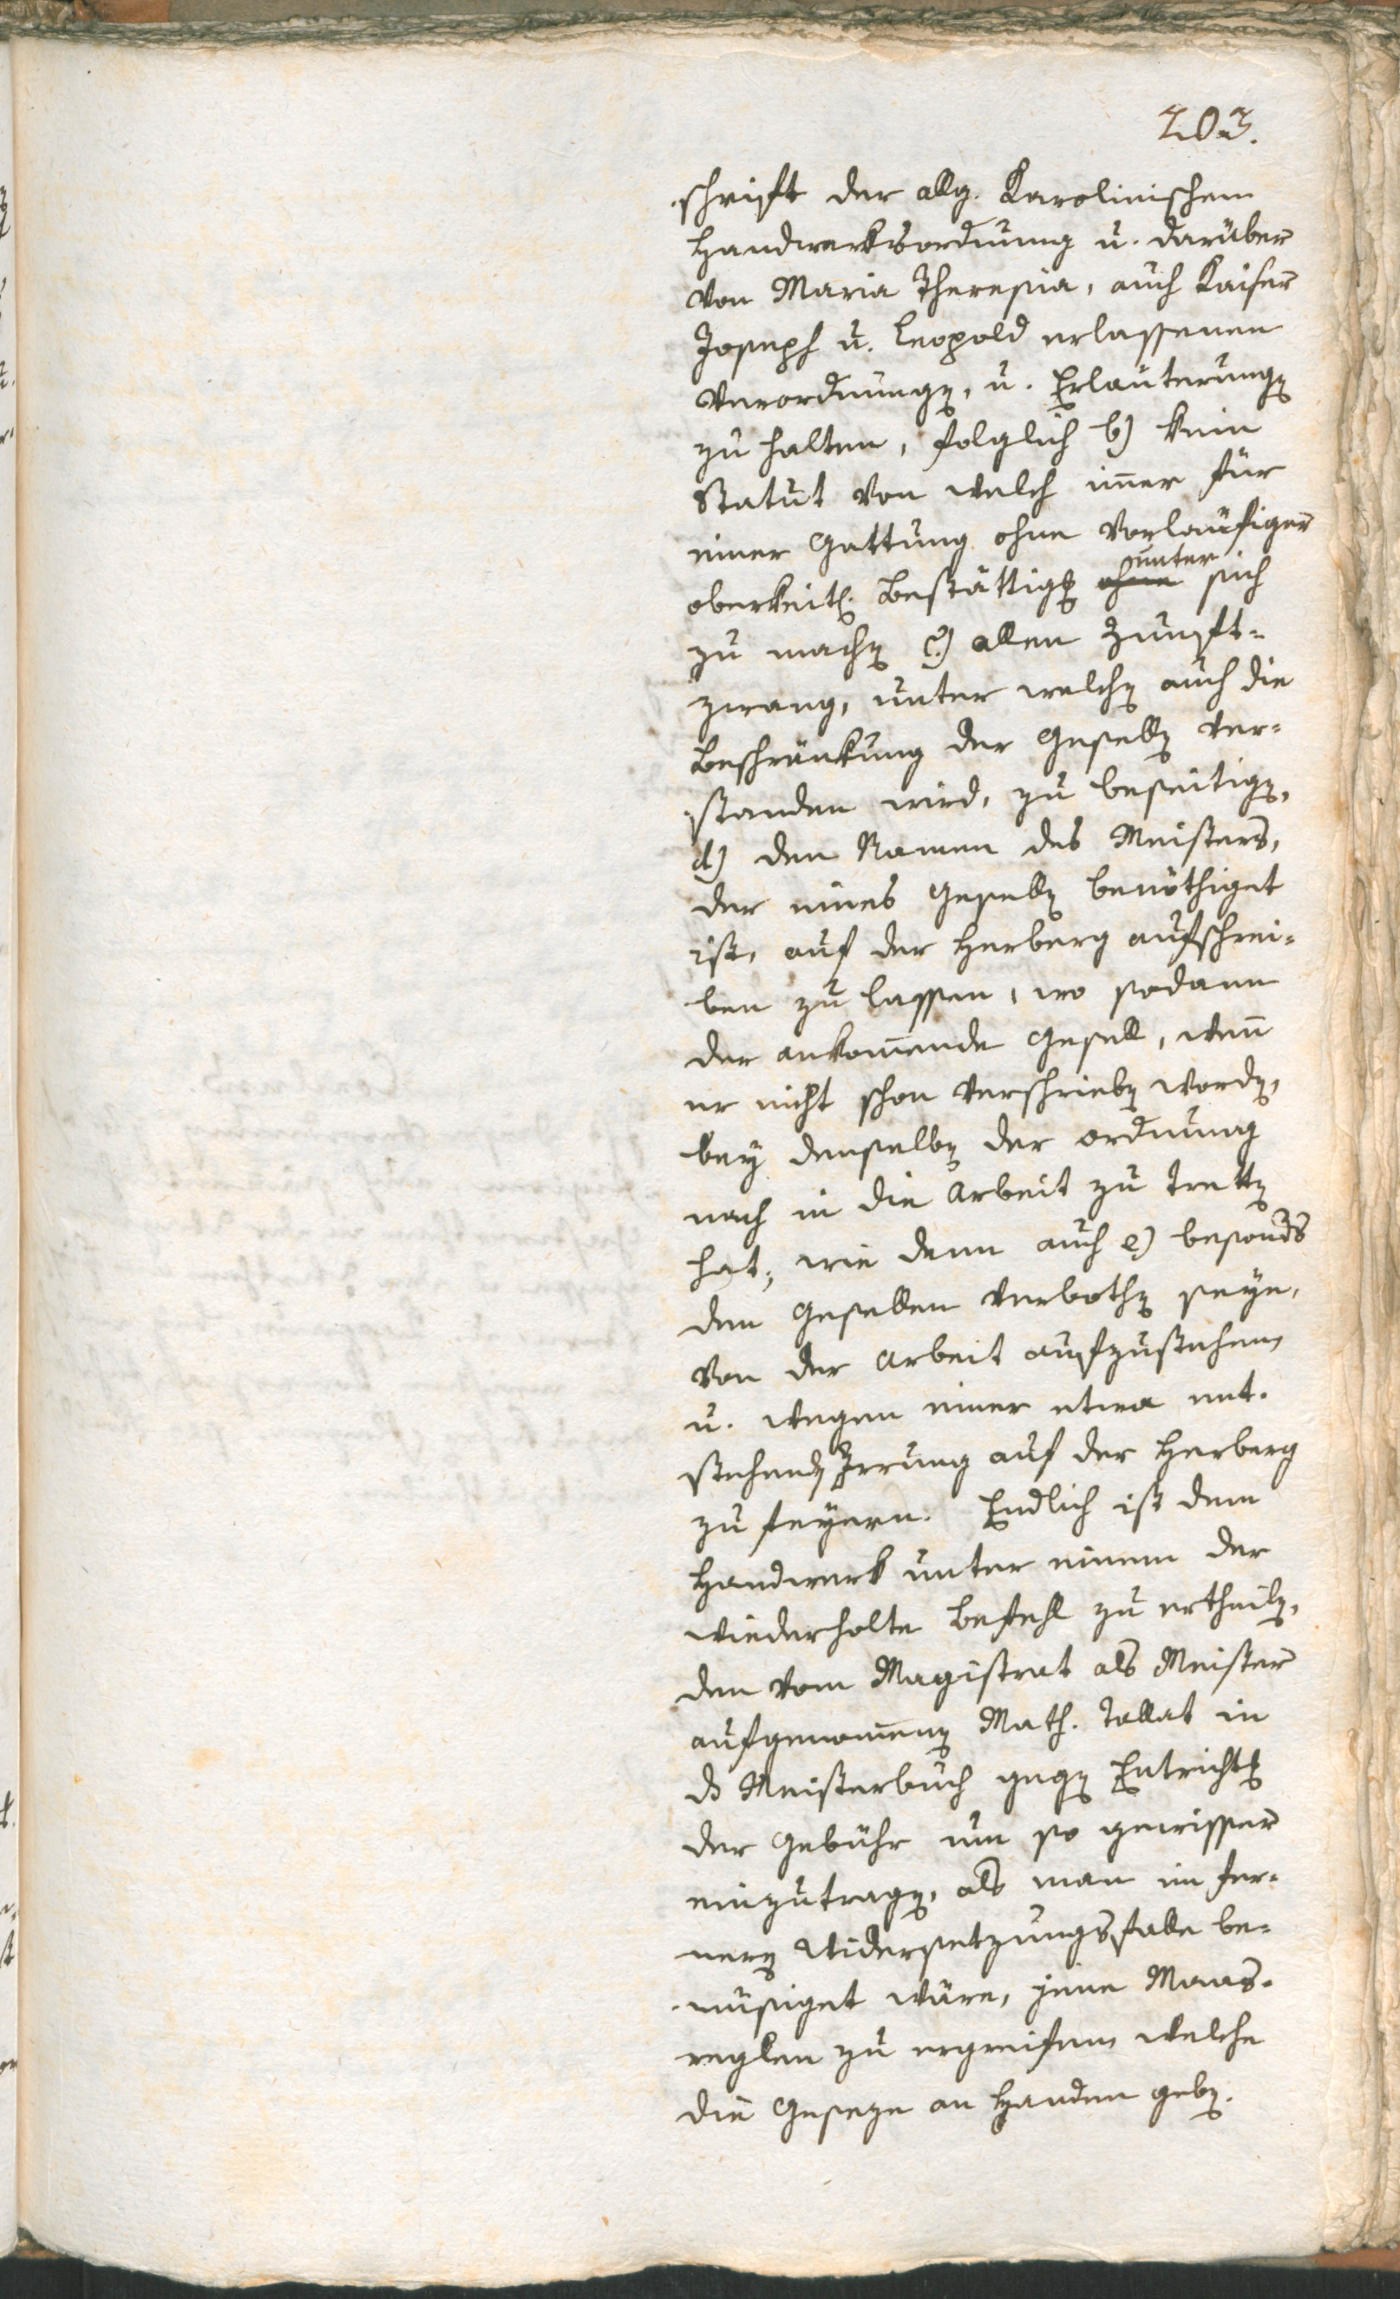 203.
schrift der allg. Karolinischem
Handwerksordnung u. darüber
von Maria Theresia, auch Kaiser
Joseph u. Leopold erlassenen
Verordnungen, u. Erläuterungen
zu halten, folglich b) kein
Statut von welch im̄er für
einer Gattung ohne vorläufiger
oberkeitl. Bestättigg ohne unter sich
zu machen c) allen Zunft-
zwang, unter welchen auch die
Beschränkung der Gesellen ver-
standen wird, zu beseitigen,
d) den Namen des Meisters,
der eines Gesellen benöthiget
ist, auf der Herberg aufschrei-
ben zu lassen, wo sodann
der ankom̄ende Gesell, wen̄
er nicht schon verschrieben worden,
bey denselben der ordnung
nach in die Arbeit zu tretten
hat, wie denn auch e) besonders
den Gesellen verbothen seye,
von der Arbeit aufzustehen,
u. wegen einer etwa ent-
stehenden Irrung auf der Herberg
zu feyern. Endlich ist dem
Handwerk unter einem der
wiederholte Befehl zu ertheilen,
den vom Magistrat als Meister
aufgenom̄enen Math. Tallat in
ds Meisterbuch gegen Entrichtg
der Gebühr um so gewisser
einzutragen, als man im fer-
neren Widersetzungsfalle be-
müsiget wäre, jene Maas-
reglen zu ergreifen, welche
die Geseze an Handen geben.